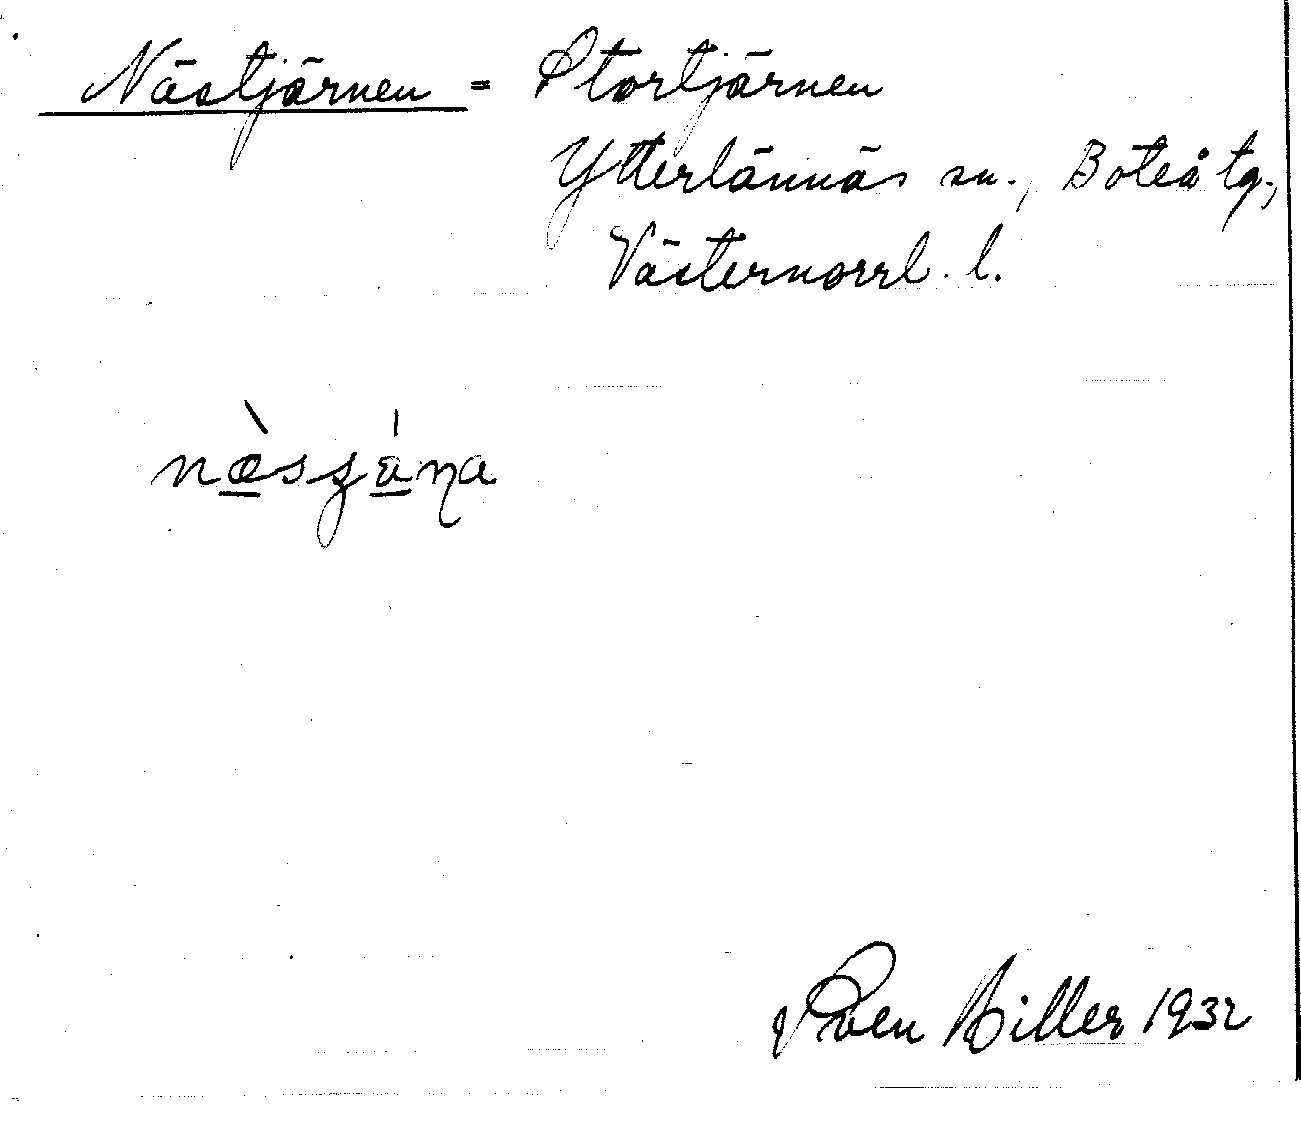 Nästjärnen = Stortjärnen
Ytterlännäs sn., Boteå tg.,
Västernorrl. l.
Sven Hiller 1932